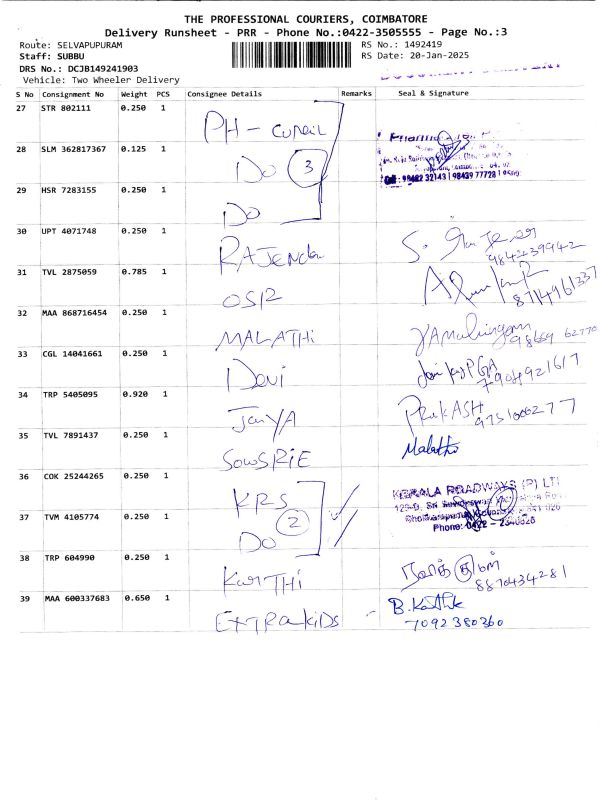 THE PROFESSIONAL COURIERS, COIMBATORE
Delivery Runsheet - PRR - Phone No.:0422-3505555 - Page No.:3
Route: SELVAPUPURAM
RS No.: 1492419
Staff: SUBBU
RS Date: 20-Jan-2025
DRS No.: DCJB149241903
Vehicle: Two Wheeler Delivery
S No Consignment No Weight PCS Consignee Details Remarks Seal & Signature
27 STR 802111 0.250 1
PH - Cuncil
28 SLM 362817367 0.125 1
Do 3
Cell : 98422 32143 | 98439 77728
29 HSR 7283155 0.250 1
Do
30 UPT 4071748 0.250 1
RAJENdn
9842239942
31 TVL 2875059 0.785 1
OSR
8714961337
32 MAA 868716454 0.250 1
MALATHi
98669 62770
33 CGL 14041661 0.250 1
Devi
7904921617
34 TRP 5405095 0.920 1
JanYA
PRakASH
9751000277
35 TVL 7891437 0.250 1
SowSRiE
Malathi
36 COK 25244265 0.250 1
KRS
KERALA ROADWAYS (P) LTD
37 TVM 4105774 0.250 1
2
Do
Phone: 0422 - 2340626
38 TRP 604990 0.250 1
KarTHi
8870434281
39 MAA 600337683 0.650 1
EXTRakiDS
B. Karthik
7092380360